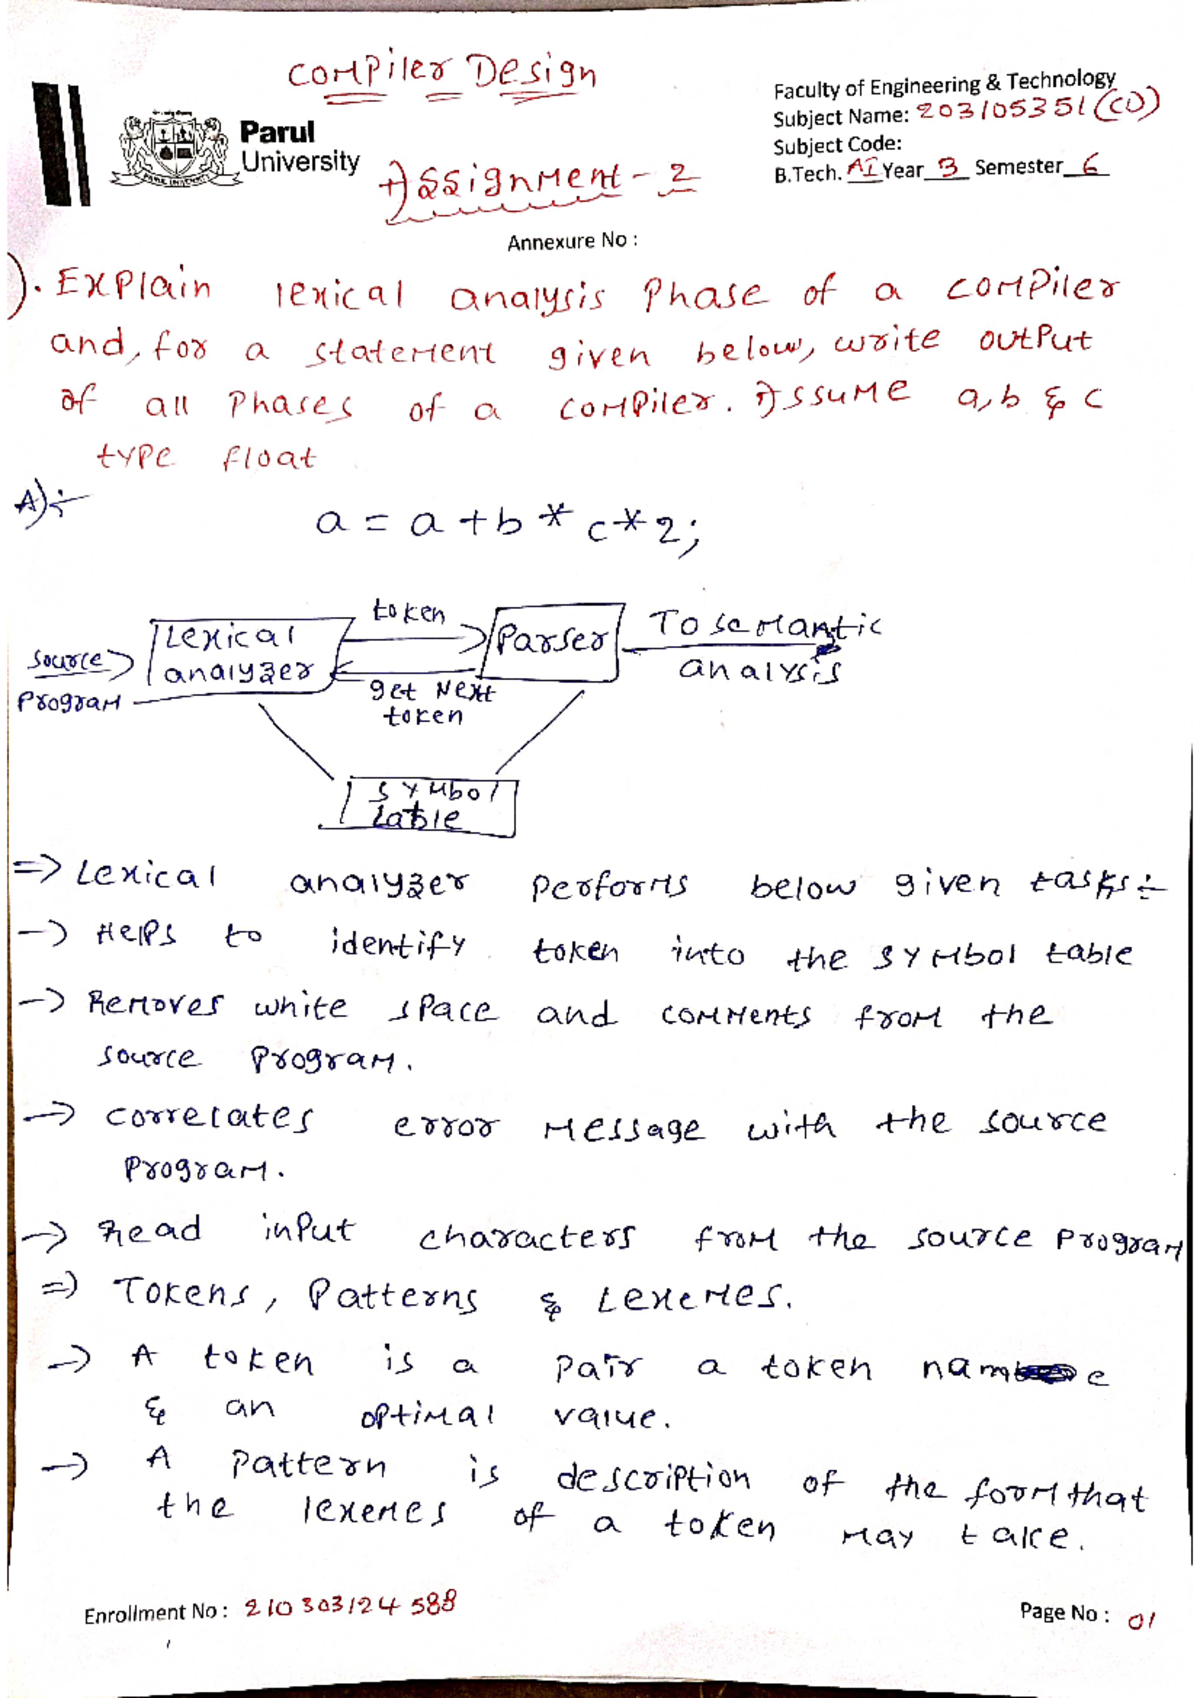 Compiler Design
Faculty of Engineering & Technology
Subject Name: 203105351(CD)
Subject Code:
B.Tech. AI Year 3 Semester 6
Parul
University
PARUL UNIVERSITY
Assignment - 2
Annexure No :
). Explain lexical analysis Phase of a compiler
and, for a statement given below, write output
of all Phases of a compiler. Assume a, b & c
type float
A):-
a = a + b * c * 2;
token
Lexical
analyzer
Parser
To semantic
analysis
source
Program
get Next
token
Symbol
table
=> Lexical analyzer Performs below given tasks :-
-> Helps to identify token into the symbol table
-> Removes white space and comments from the
source Program.
-> correlates error message with the source
Program.
-> Read input characters from the source Program
=> Tokens, Patterns & Lexemes.
-> A token is a pair a token name
& an optimal value.
-> A Pattern is description of the form that
the lexemes of a token may take.
Enrollment No : 210303124588
Page No : 01